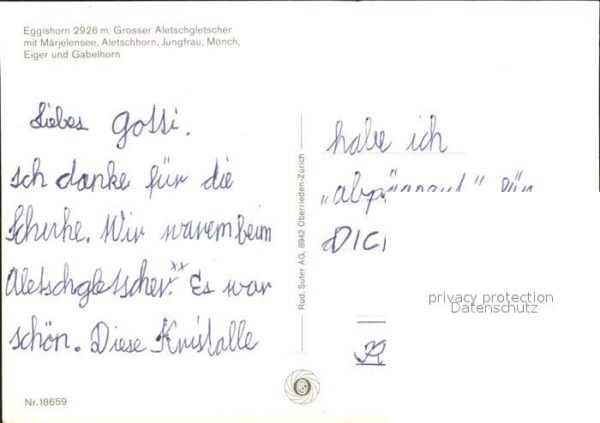 Eggishorn 2926 m, Grosser Aletschgletscher
mit Märjelensee, Aletschhorn, Jungfrau, Mönch,
Eiger und Gabelhorn
Liebes Gotti.
Ich danke für die
Wir waren beim
Aletschgletscher.xx Es war
schön. Diese Kristalle
Rud. Suter AG, 8942 Oberrieden-Zürich
habe ich
für
privacy protection
Datenschutz
Nr. 18659